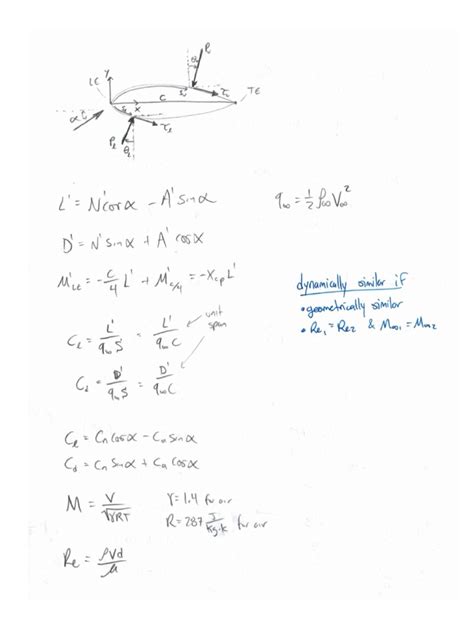 P_u
θ_u
LE
y
s_u
τ_u
c
x
TE
s_l
α
τ_l
P_l
θ_l
L' = N'cosα − A'sinα
q_∞ = 1/2 ρ_∞ V_∞²
D' = N'sinα + A'cosα
M'_LE = −c/4 L' + M'_c/4 = −x_cp L'
dynamically similar if
• geometrically similar
• Re_1 = Re_2 & M_∞1 = M_∞2
C_l = L'/(q_∞ S) = L'/(q_∞ C)
unit
span
C_d = D'/(q_∞ S) = D'/(q_∞ C)
C_l = C_n cosα − C_a sinα
C_d = C_n sinα + C_a cosα
M = V/√(γRT)
γ = 1.4 for air
R = 287 J/(kg·K) for air
Re = ρVd/μ